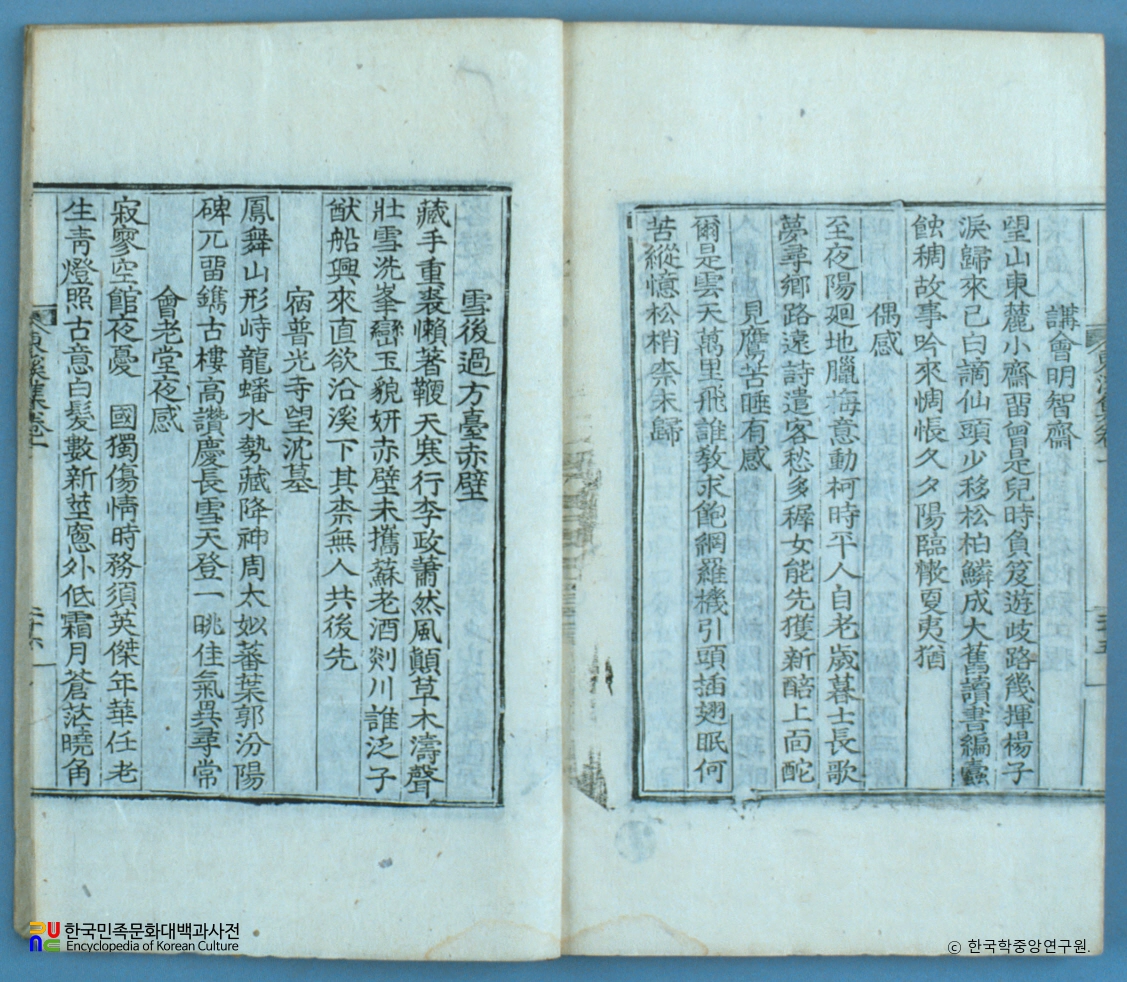 講會明智齋
望山東麓小齋畱曾是兒時負笈遊歧路幾揮楊子
淚歸來已白謫仙頭少移松柏鱗成大舊讀書編蠹
蝕稠故事吟來惆悵久夕陽臨檄夏夷猶
偶感
至夜陽廻地臘梅意動柯時平人自老歲暮士長歌
夢尋鄉路遠詩遣客愁多穉女能先獲新醅上面酡
見鷹苦睡有感
爾是雲天萬里飛誰敎求飽網羅機引頭插翅眠何
苦縱憶松梢柰未歸
雪後過方臺赤壁
藏手重裘懶著鞭天寒行李政蕭然風顚草木濤聲
壯雪洗峯巒玉貌姸赤壁未攜蘇老酒剡川誰泛子
猷船興來直欲沿溪下其柰無人共後先
宿普光寺望沈墓
鳳舞山形峙龍蟠水勢藏降神周太姒蕃葉郭汾陽
碑兀畱鐫古樓高讚慶長雪天登一眺佳氣異尋常
會老堂夜感
寂寥空館夜憂國獨傷情時務須英傑年華任老
生靑燈照古意白髮數新莖窻外低霜月蒼茫曉角
한국민족문화대백과사전
Encyclopedia of Korean Culture
ⓒ 한국학중앙연구원.